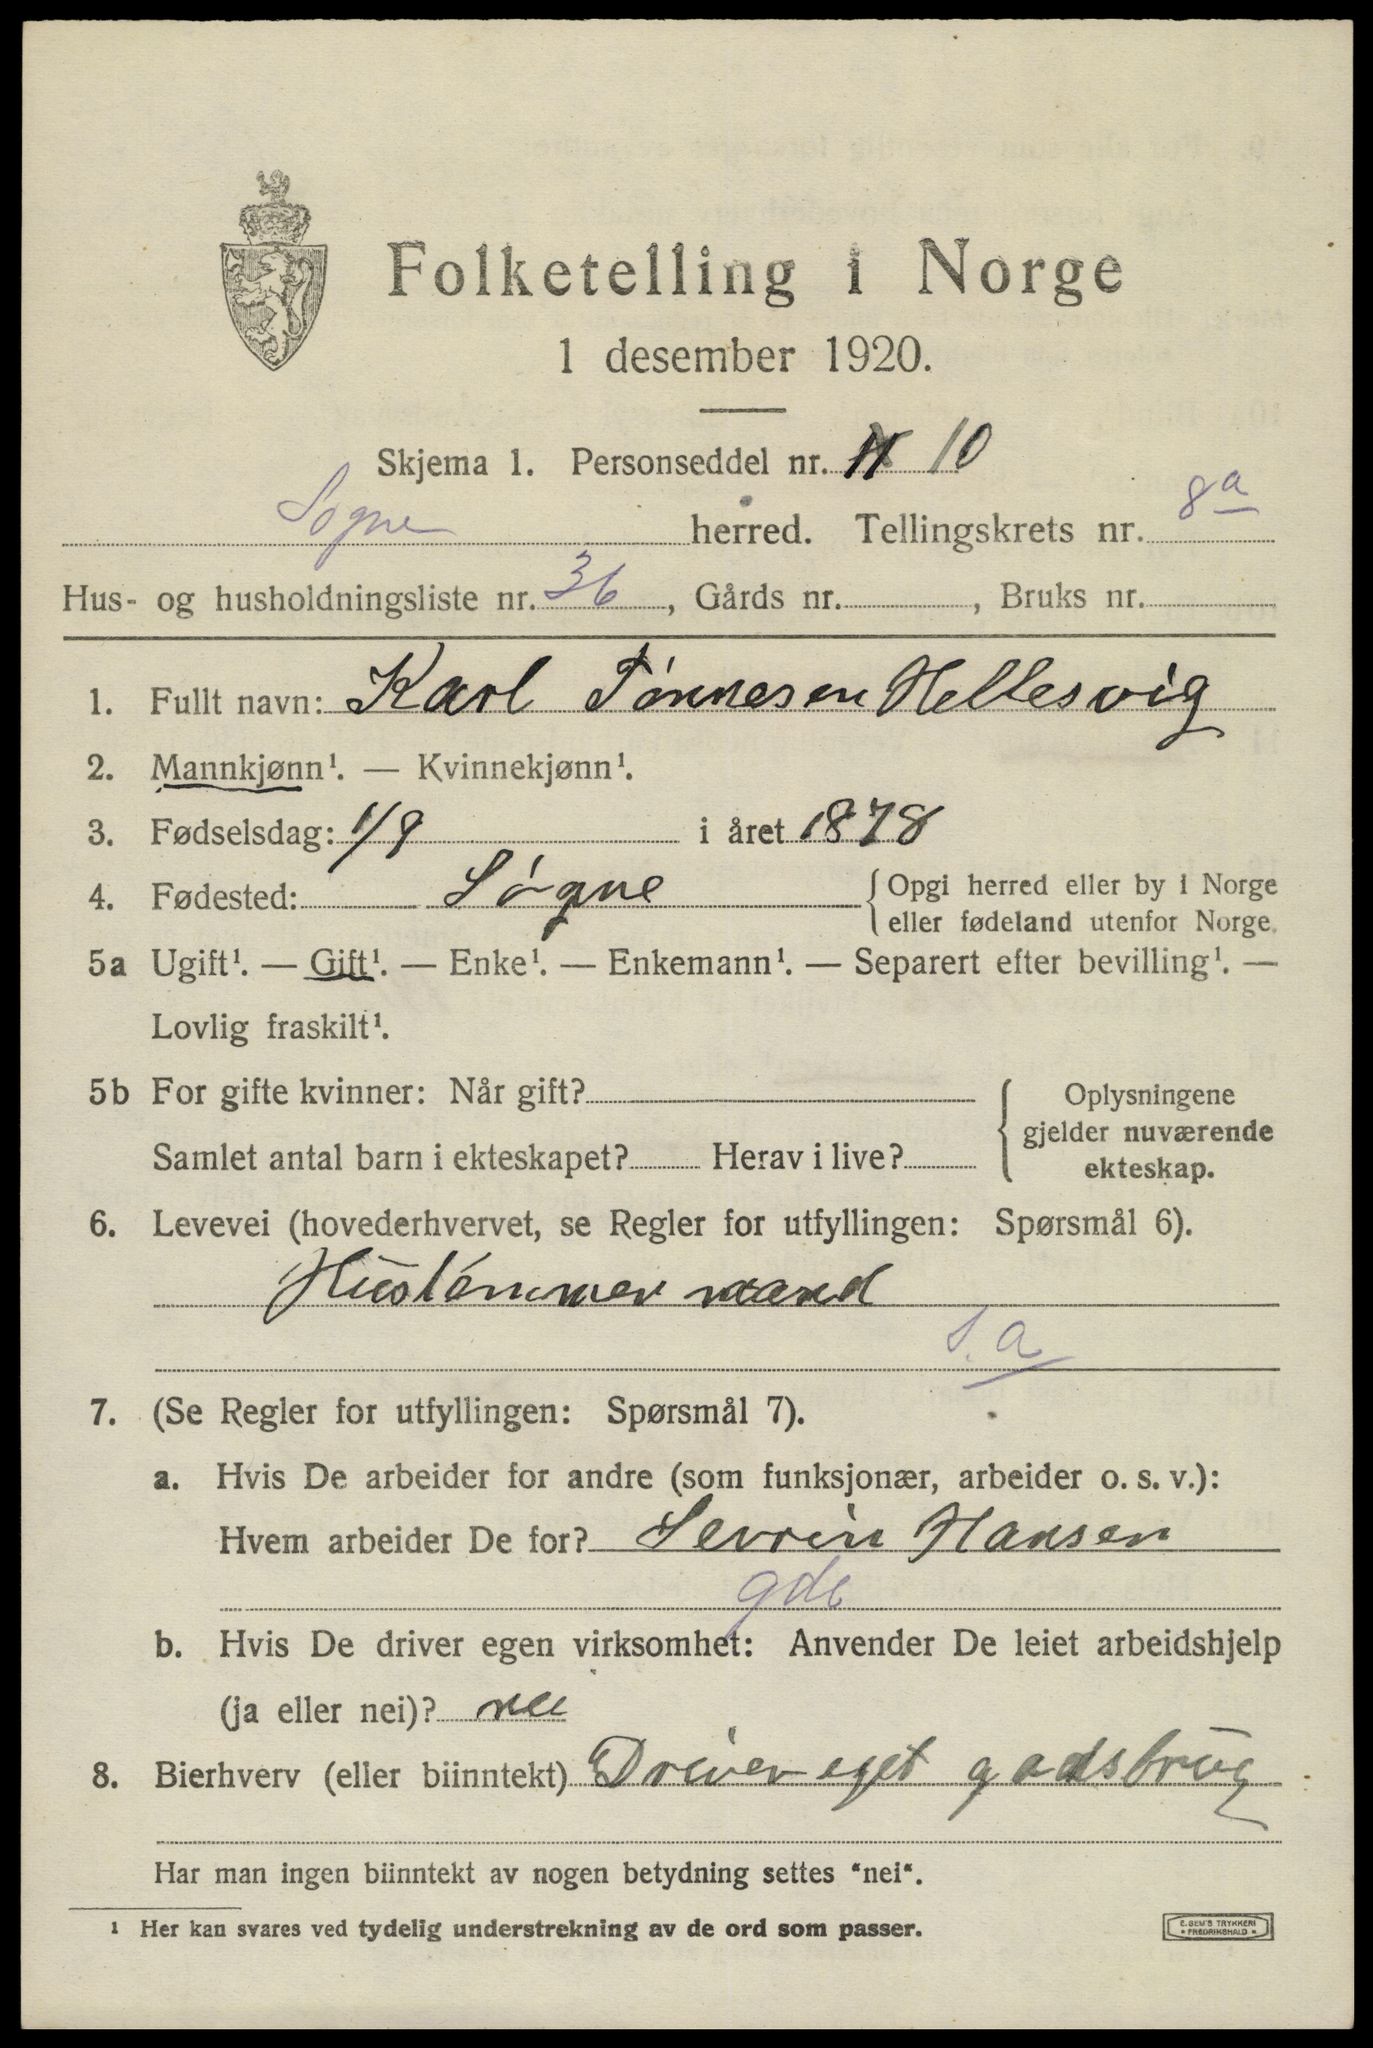 Folketelling i Norge
1 desember 1920.
Skjema 1. Personseddel nr. 10
Sogne herred. Tellingskrets nr. 8a
Hus- og husholdningsliste nr. 36, Gårds nr. , Bruks nr.
1. Fullt navn: Karl Tønnesen Hellesvig
2. Mannkjønn¹. — Kvinnekjønn¹.
3. Fødselsdag: 1/9 i året 1878
4. Fødested: Søgne { Opgi herred eller by i Norge
eller fødeland utenfor Norge.
5a Ugift¹. — Gift¹. — Enke¹. — Enkemann¹. — Separert efter bevilling¹. —
Lovlig fraskilt¹.
5b For gifte kvinner: Når gift? { Oplysningene
gjelder nuværende
Samlet antal barn i ekteskapet? Herav i live?
ekteskap.
6. Levevei (hovederhvervet, se Regler for utfyllingen: Spørsmål 6).
Hustømmer mand
S. a
7. (Se Regler for utfyllingen: Spørsmål 7).
a. Hvis De arbeider for andre (som funksjonær, arbeider o. s. v.):
Hvem arbeider De for? Sevrin Hansen
gdb
b. Hvis De driver egen virksomhet: Anvender De leiet arbeidshjelp
(ja eller nei)? nei
8. Bierhverv (eller biinntekt) Driver eget gadsbrug
Har man ingen biinntekt av nogen betydning settes "nei".
¹ Her kan svares ved tydelig understrekning av de ord som passer.
E. SEM'S TRYKKERI
FREDRIKSHALD